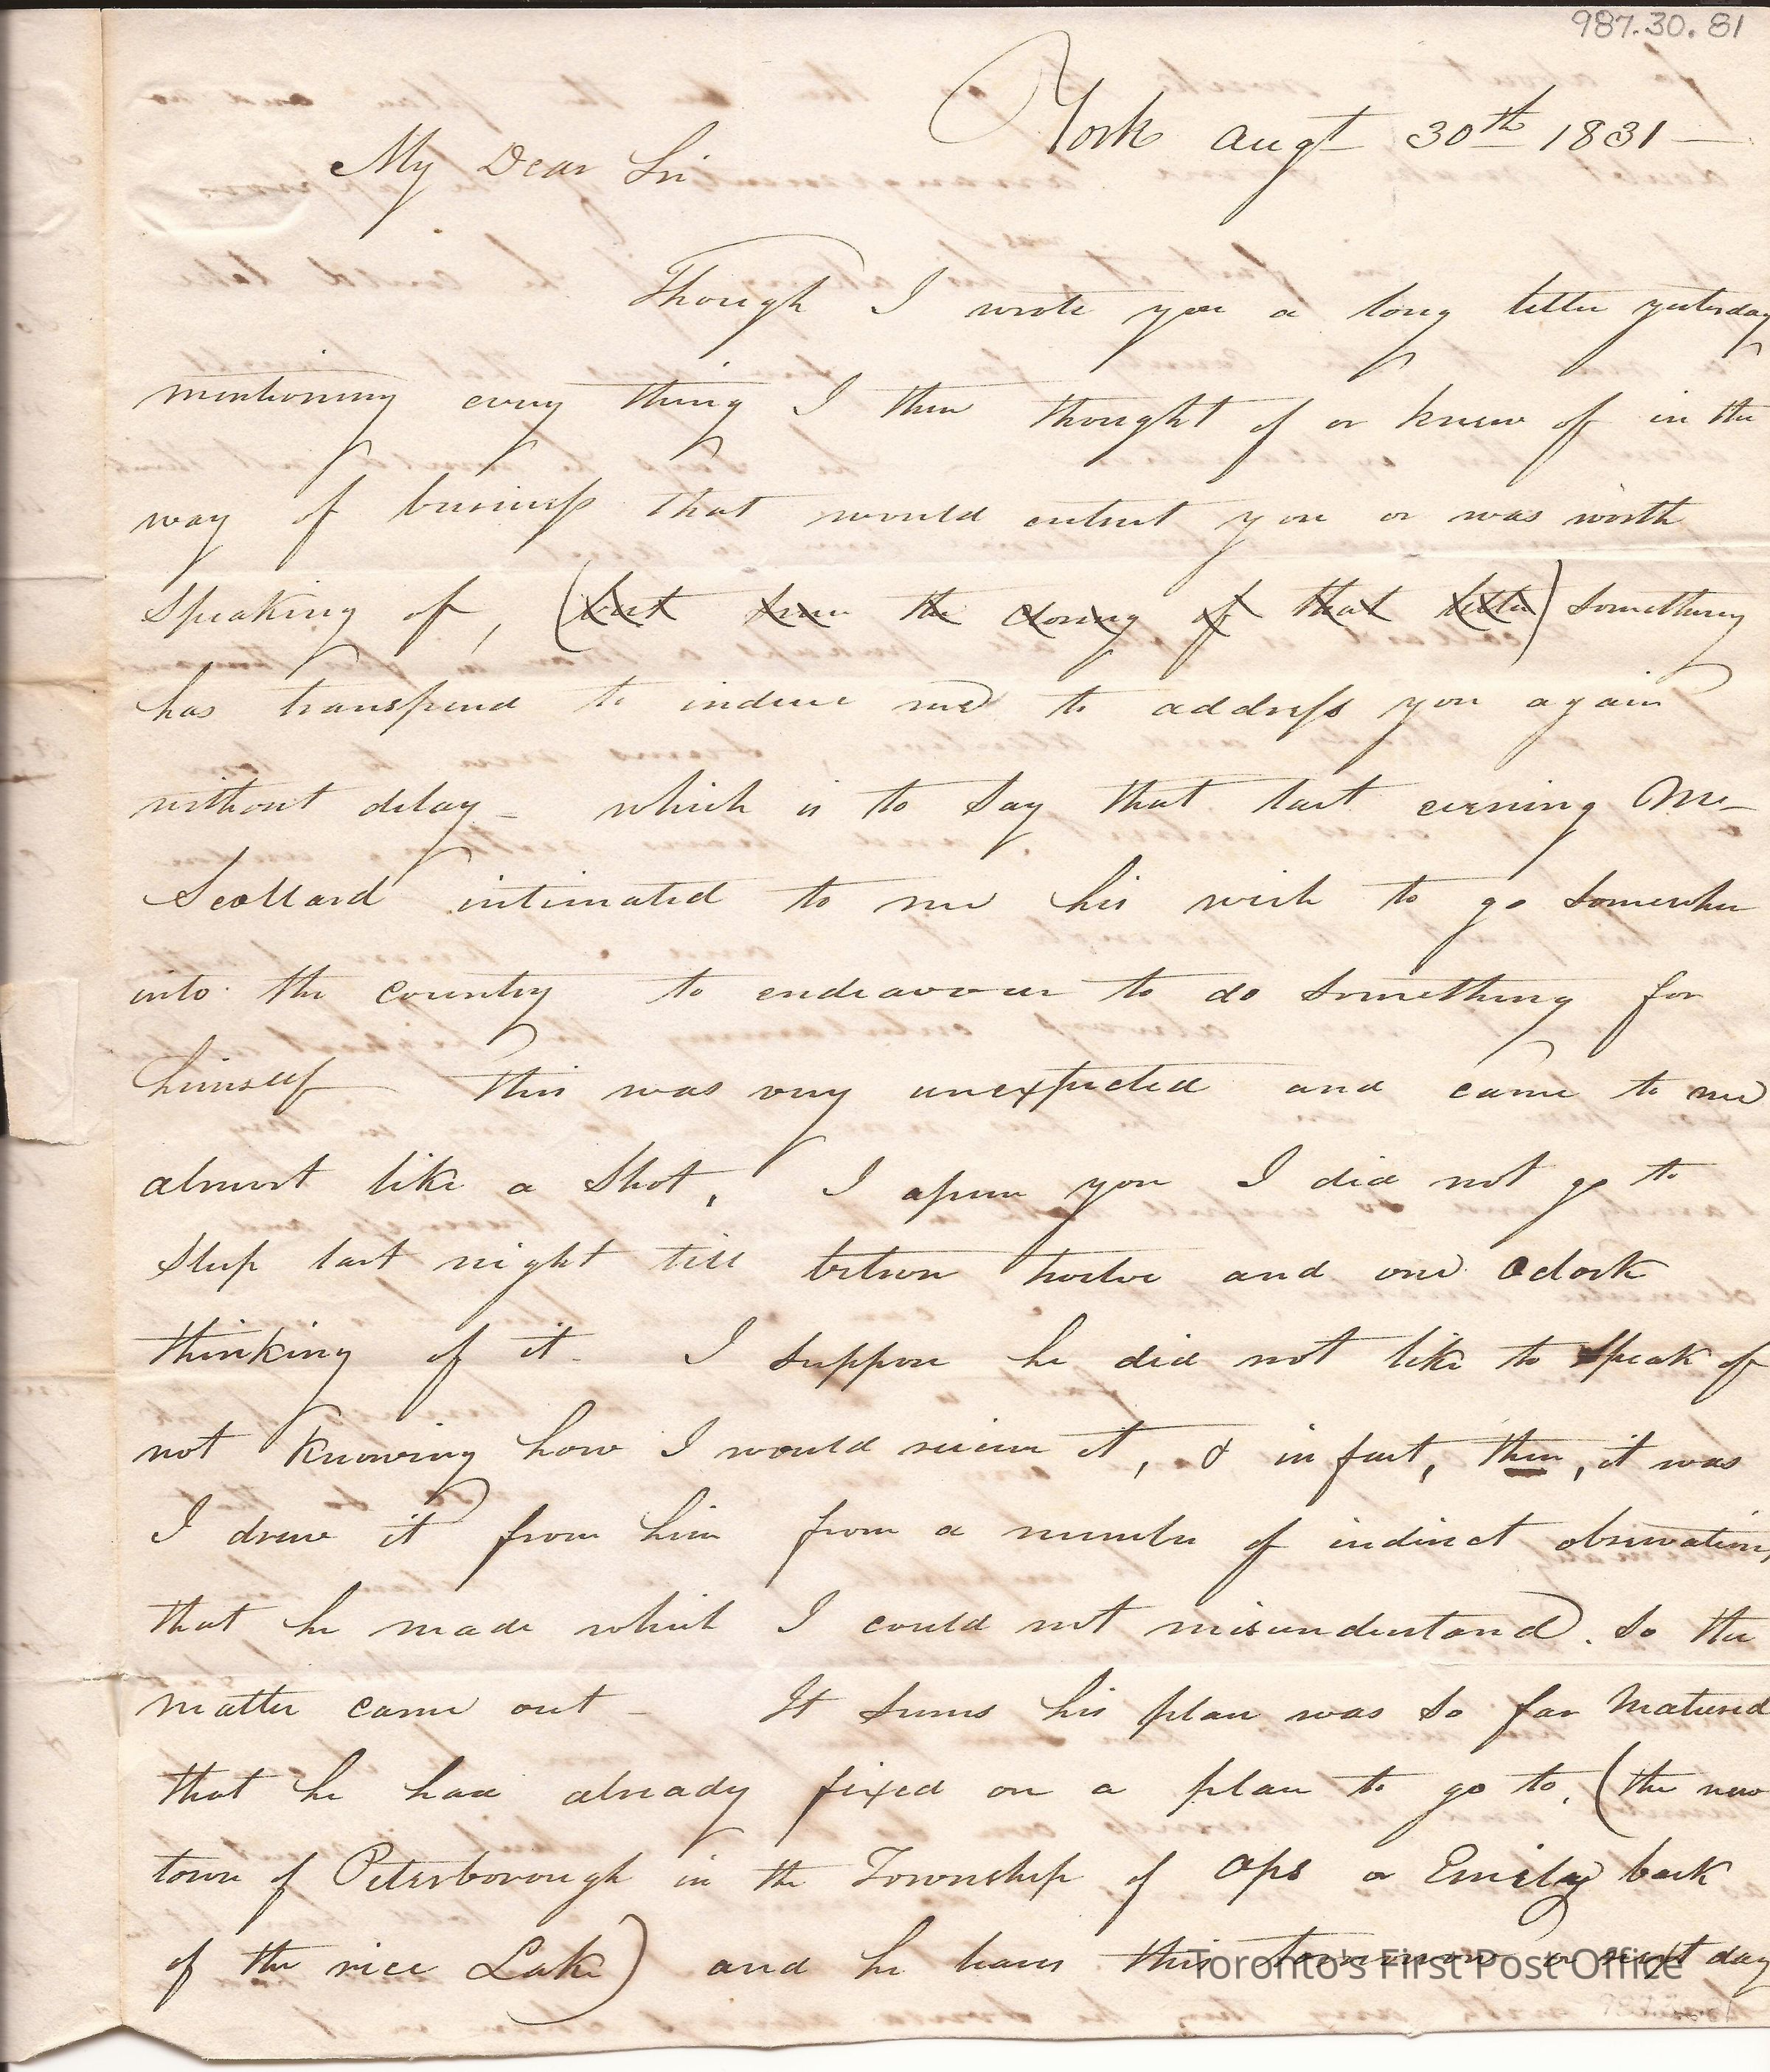 987.30.81
York augt 30th 1831 —
My Dear Sir
Though I wrote you a long letter yesterday
mentioning every thing I then thought of or knew of in the
way of business that would intrest you or was worth
speaking of, (but since the closing of that letter) something
has transpired to induce me to address you again
without delay — which is to say that last evening Mr
Scollard intimated to me his wish to go somewhere
into the country to endeavour to do something for
himself — This was very unexpected and came to me
almost like a shot, I assure you I did not go to
sleep last night till between twelve and one Oclock
thinking of it — I suppose he did not like to speak of
not knowing how I would receive it, & in fact, then, it was
I drew it from him from a number of indirect observations
that he made which I could not misunderstand. So the
matter came out — It seems his plan was so far matured
that he had already fixed on a place to go to, (the new
town of Peterborough in the Township of Ops or Emily back
of the rice Lake) and he leaves this tomorrow or next day
Toronto's First Post Office